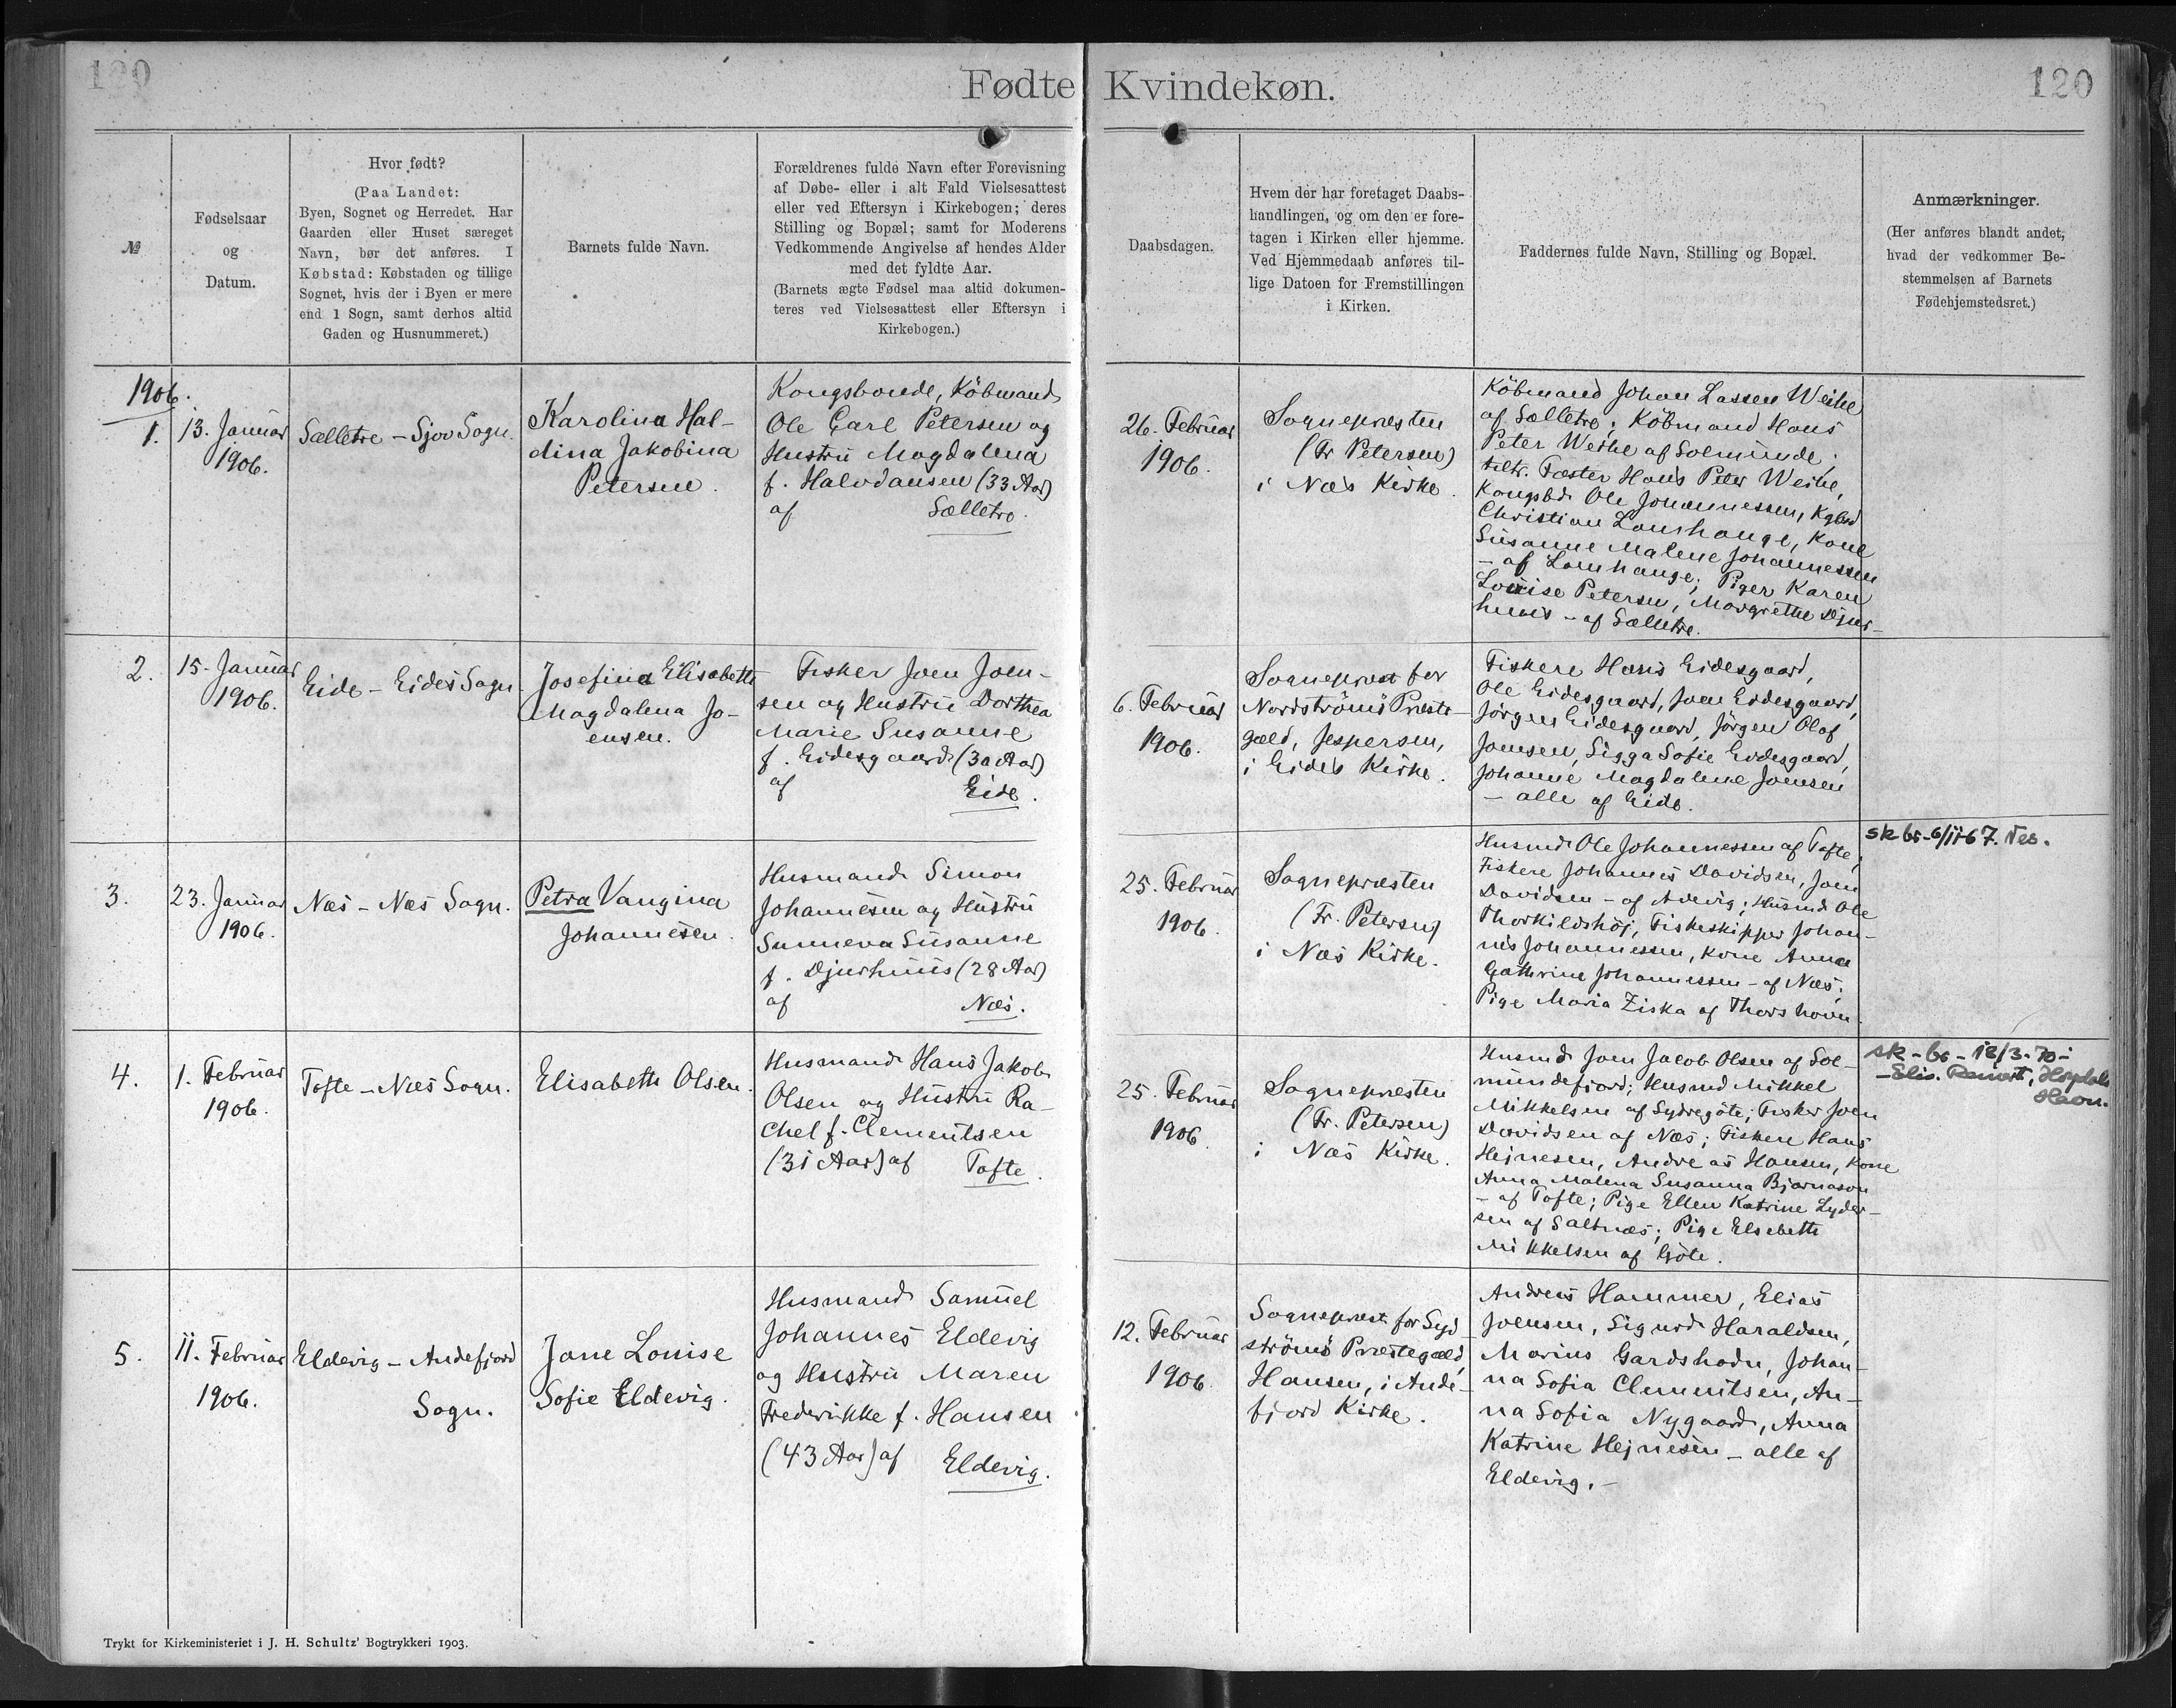 120
Fødte Kvindekøn.
120
№
Fødselsaar
og
Datum.
Hvor født?
(Paa Landet:
Byen, Sognet og Herredet. Har
Gaarden eller Huset særeget
Navn, bør det anføres. I
Købstad: Købstaden og tillige
Sognet, hvis der i Byen er mere
end 1 Sogn, samt derhos altid
Gaden og Husnummeret.)
Barnets fulde Navn.
Forældrenes fulde Navn efter Forevisning
af Døbe- eller i alt Fald Vielsesattest
eller ved Eftersyn i Kirkebogen; deres
Stilling og Bopæl; samt for Moderens
Vedkommende Angivelse af hendes Alder
med det fyldte Aar.
(Barnets ægte Fødsel maa altid dokumen-
teres ved Vielsesattest eller Eftersyn i
Kirkebogen.)
Daabsdagen.
Hvem der har foretaget Daabs-
handlingen, og om den er fore-
tagen i Kirken eller hjemme.
Ved Hjemmedaab anføres til-
lige Datoen for Fremstillingen
i Kirken.
Faddernes fulde Navn, Stilling og Bopæl.
Anmærkninger.
(Her anføres blandt andet,
hvad der vedkommer Be-
stemmelsen af Barnets
Fødehjemstedsret.)
1906.
1.
13. Januar
1906.
Sælletre - Sjov Sogn.
Karolina Hal-
dina Jakobina
Petersen.
Kongsbonde, Köbmand
Ole Carl Petersen og
Hustru Magdalena
f. Halvdansen (33 Aar)
af Sælletre.
26. Februar
1906.
Sognepræsten
(Fr Petersen)
i Næs Kirke.
Köbmand Johan Lassen Weihe
af Sælletre; Köbmand Hans
Peter Weihe af Solmunde;
Fæster Hans Peter Weihe,
Kongsbd. Ole Johannessen, Kgbd
Christian Lamhauge, Kone
Susanne Malene Johannessen
- af Lamhauge; Piger Karen
Louise Petersen, Margrethe Djur-
huus - af Sælletre.
2.
15. Januar
1906.
Eide - Eides Sogn.
Josefina Elisabeth
Magdalena Jo-
ensen.
Fisker Joen Joen-
sen og Hustru Dorthea
Marie Susanne
f. Eidesgaard (30 Aar)
af Eide.
6. Februar
1906.
Sognepræst for
Nordströmö Præste-
gæld, Jespersen,
i Eides Kirke.
Fiskere Hans Eidesgaard,
Ole Eidesgaard, Joen Eidesgaard,
Jörgen Eidesgaard, Jörgen Olaf
Joensen, Sigga Sofie Eidesgaard,
Johanne Magdalene Joensen
- alle af Eide.
3.
23. Januar
1906.
Næs - Næs Sogn.
Petra Vangina
Johannesen.
Husmand Simon
Johannesen og Hustru
Sunneva Susanne
f. Djurhuus (28 Aar)
af Næs.
25. Februar
1906.
Sognepræsten
(Fr. Petersen)
i Næs Kirke.
Husmd. Ole Johannessen af Tofte;
Fiskere Johannes Davidsen, Joen
Davidsen - af ; Husmd Ole
Thorkildshöj, Fiskeskipper Johan-
nes Johannessen, Kone Anna
Cathrine Johannessen - af Næs;
Pige Maria Ziska af Thorshavn.
sk br-6/11-67. Nes.
4.
1. Februar
1906.
Tofte - Næs Sogn.
Elisabeth Olsen.
Husmand Hans Jakob
Olsen og Hustru Ra-
chel f. Clementsen
(31 Aar) af Tofte.
25. Februar
1906.
Sognepræsten
(Fr. Petersen)
i Næs Kirke.
Husmd. Joen Jacob Olsen af Sol-
mundefjord; Husmd Mikkel
Mikkelsen af Sydregöte; Fisker Joen
Davidsen af Næs; Fiskere Hans
Hejnesen, Andreas Hansen, Kone
Anna Malena Susanna Bjarnason
- af Tofte; Pige Ellen Katrine Lyder-
sen af Saltnæs; Pige Elsebeth
Mikkelsen af Göte.
sk-br-18/3-70-
-Elis. , Hoydalar
Havn.
5.
11. Februar
1906.
Eldevig - Andefjord
Sogn.
Jane Louise
Sofie Eldevig.
Husmand Samuel
Johannes Eldevig
og Hustru Maren
Frederikke f. Hansen
(43 Aar) af Eldevig.
12. Februar
1906.
Sognepræst for Syd-
strömö Præstegæld,
Hansen, i Ande-
fjord Kirke.
Andreas Hammer, Elias
Joensen, Sigurd Haraldsen,
Marius Gardshodn, Johan-
na Sofia Clementsen, An-
na Sofia Nygaard, Anna
Katrine Hejnesen - alle af
Eldevig.-
Trykt for Kirkeministeriet i J. H. Schultz' Bogtrykkeri 1903.